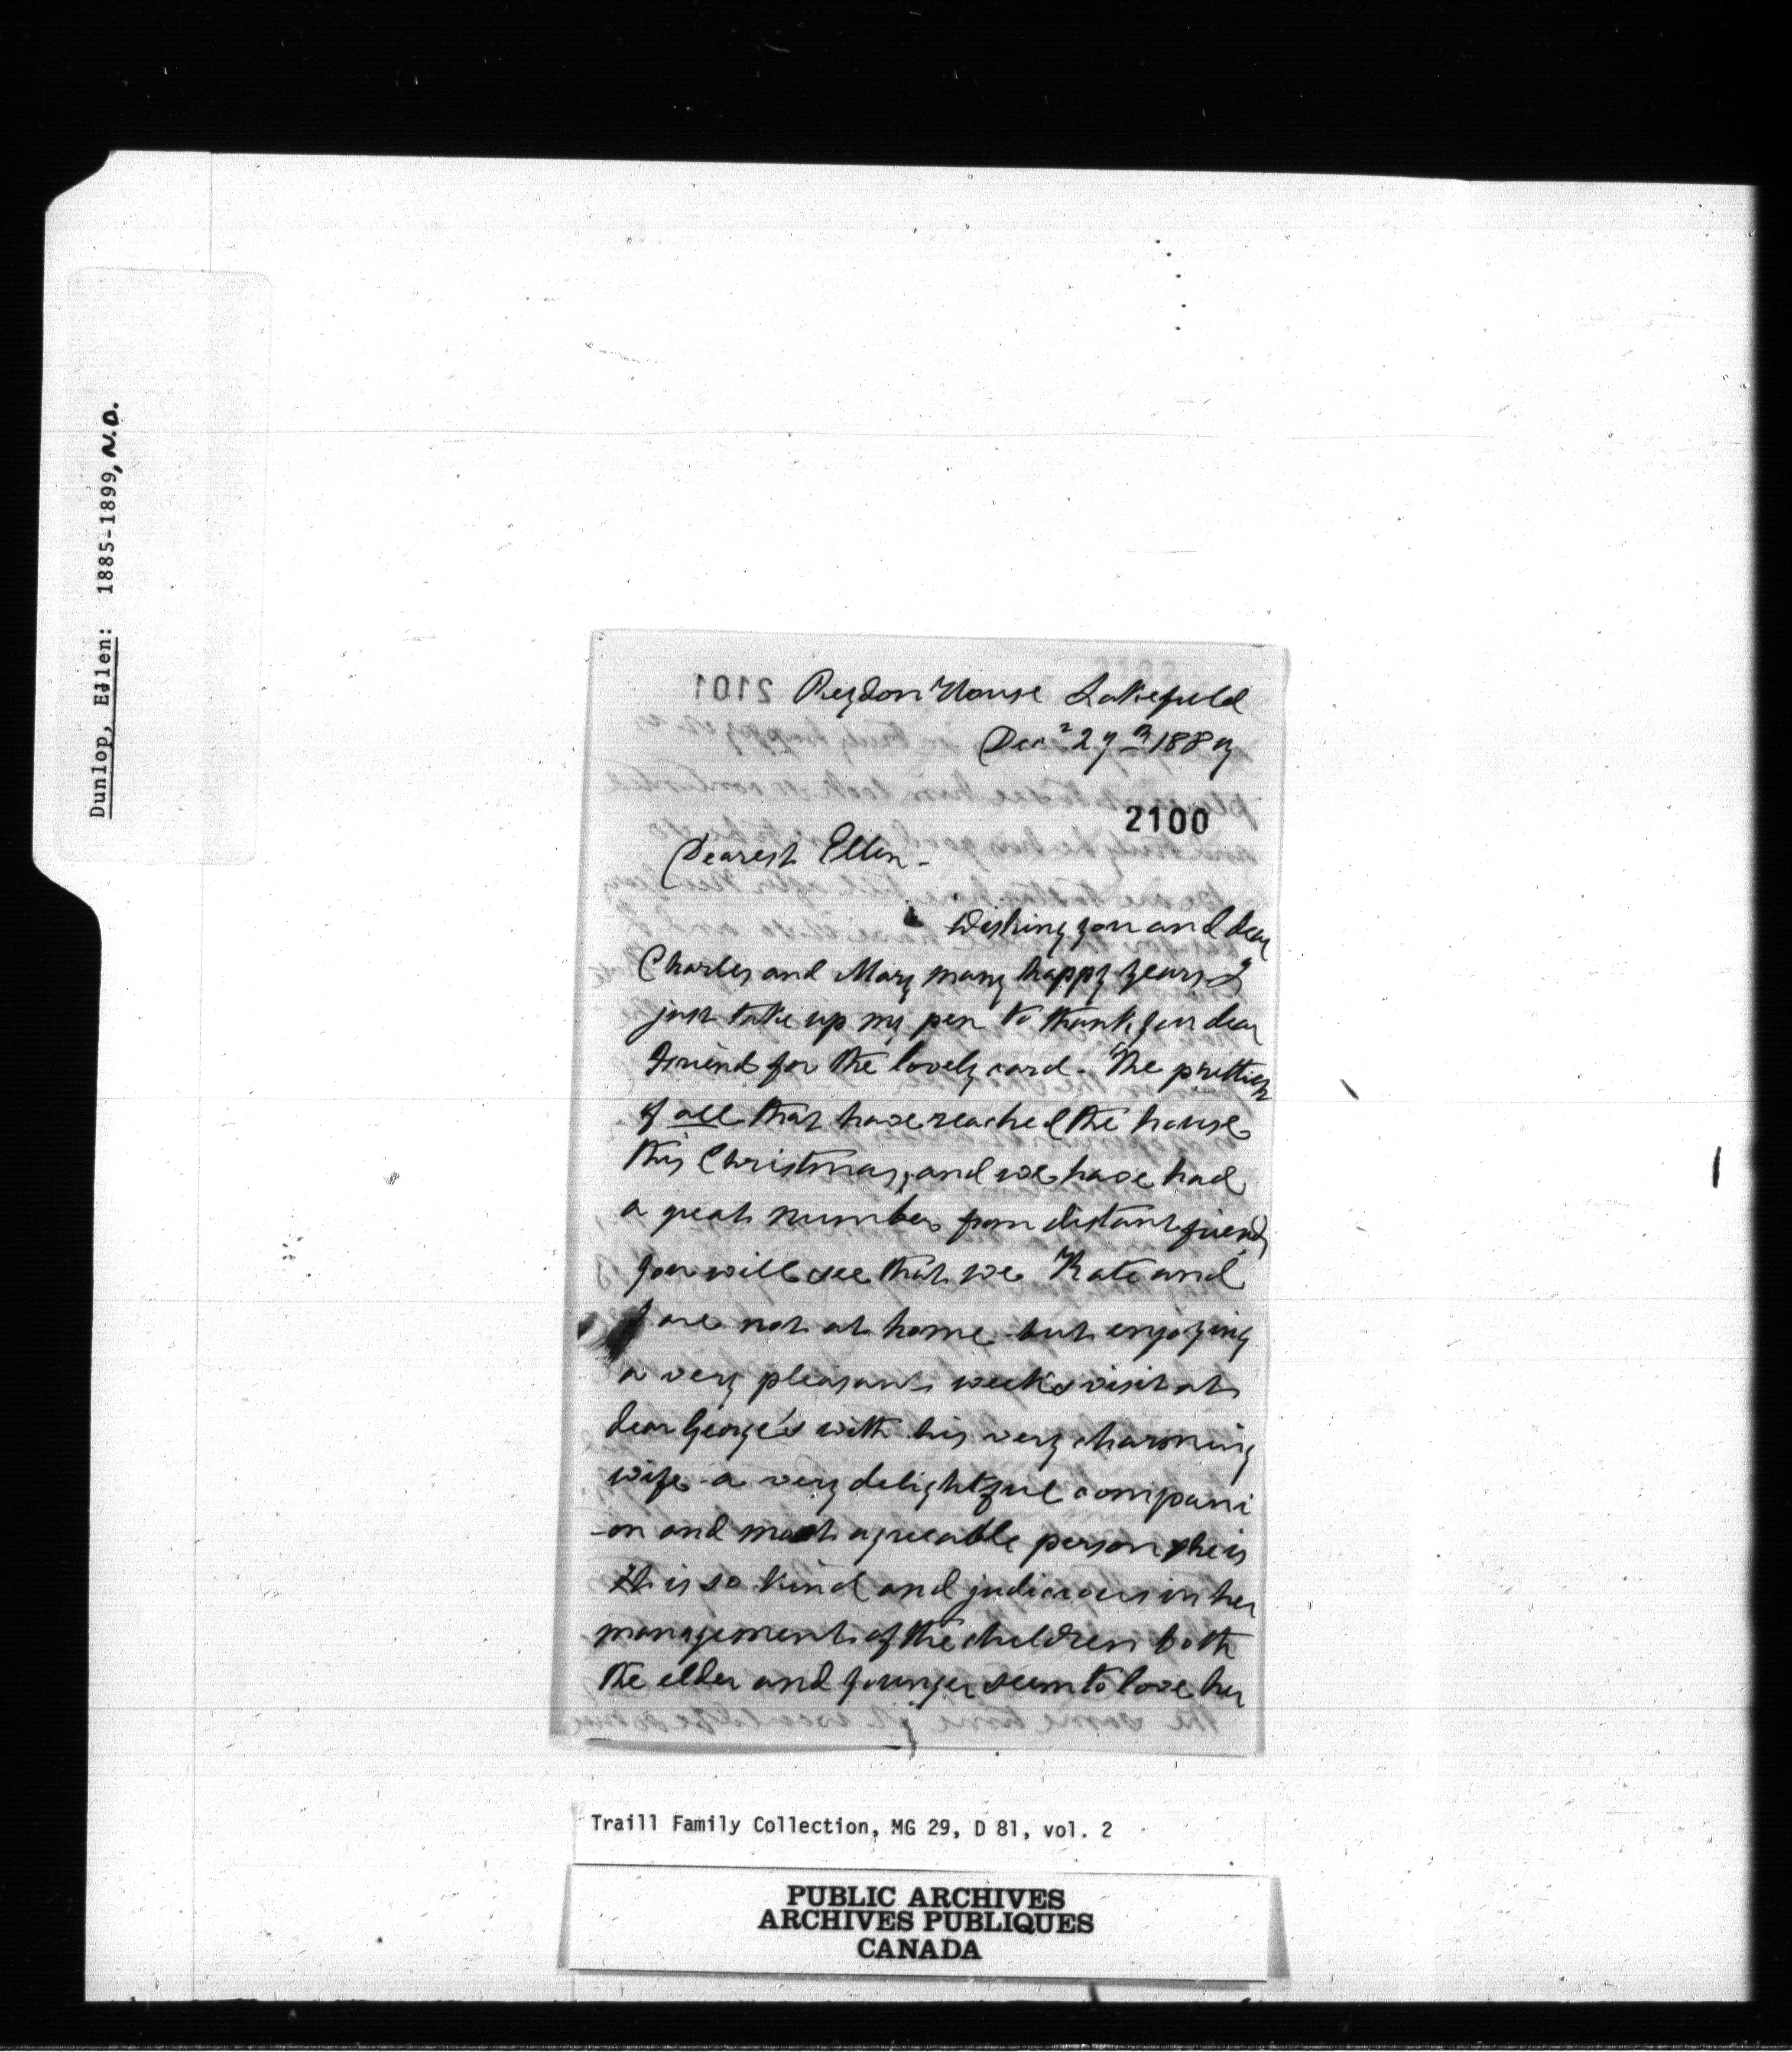 Dunlop, Ellen: 1885-1899, N.D.
2101
Reydon House Lakefield
Dec 29th 1889
2100
Dearest Ellen -
Wishing you and dear
Charles and Mary many happy years I
just take up my pen to thank you dear
friend for the lovely card. The prettiest
of all that have reached the house
this Christmas, and we have had
a great number from distant friends
you will see that we Kate and
I are not at home but enjoying
a very pleasant week's visit at
dear George's with his very charming
wife a very delightful compani
-on and most agreeable person she is
It is so kind and judicious in her
management of the children both
the elder and younger seem to love her
Traill Family Collection, MG 29, D 81, vol. 2
PUBLIC ARCHIVES
ARCHIVES PUBLIQUES
CANADA